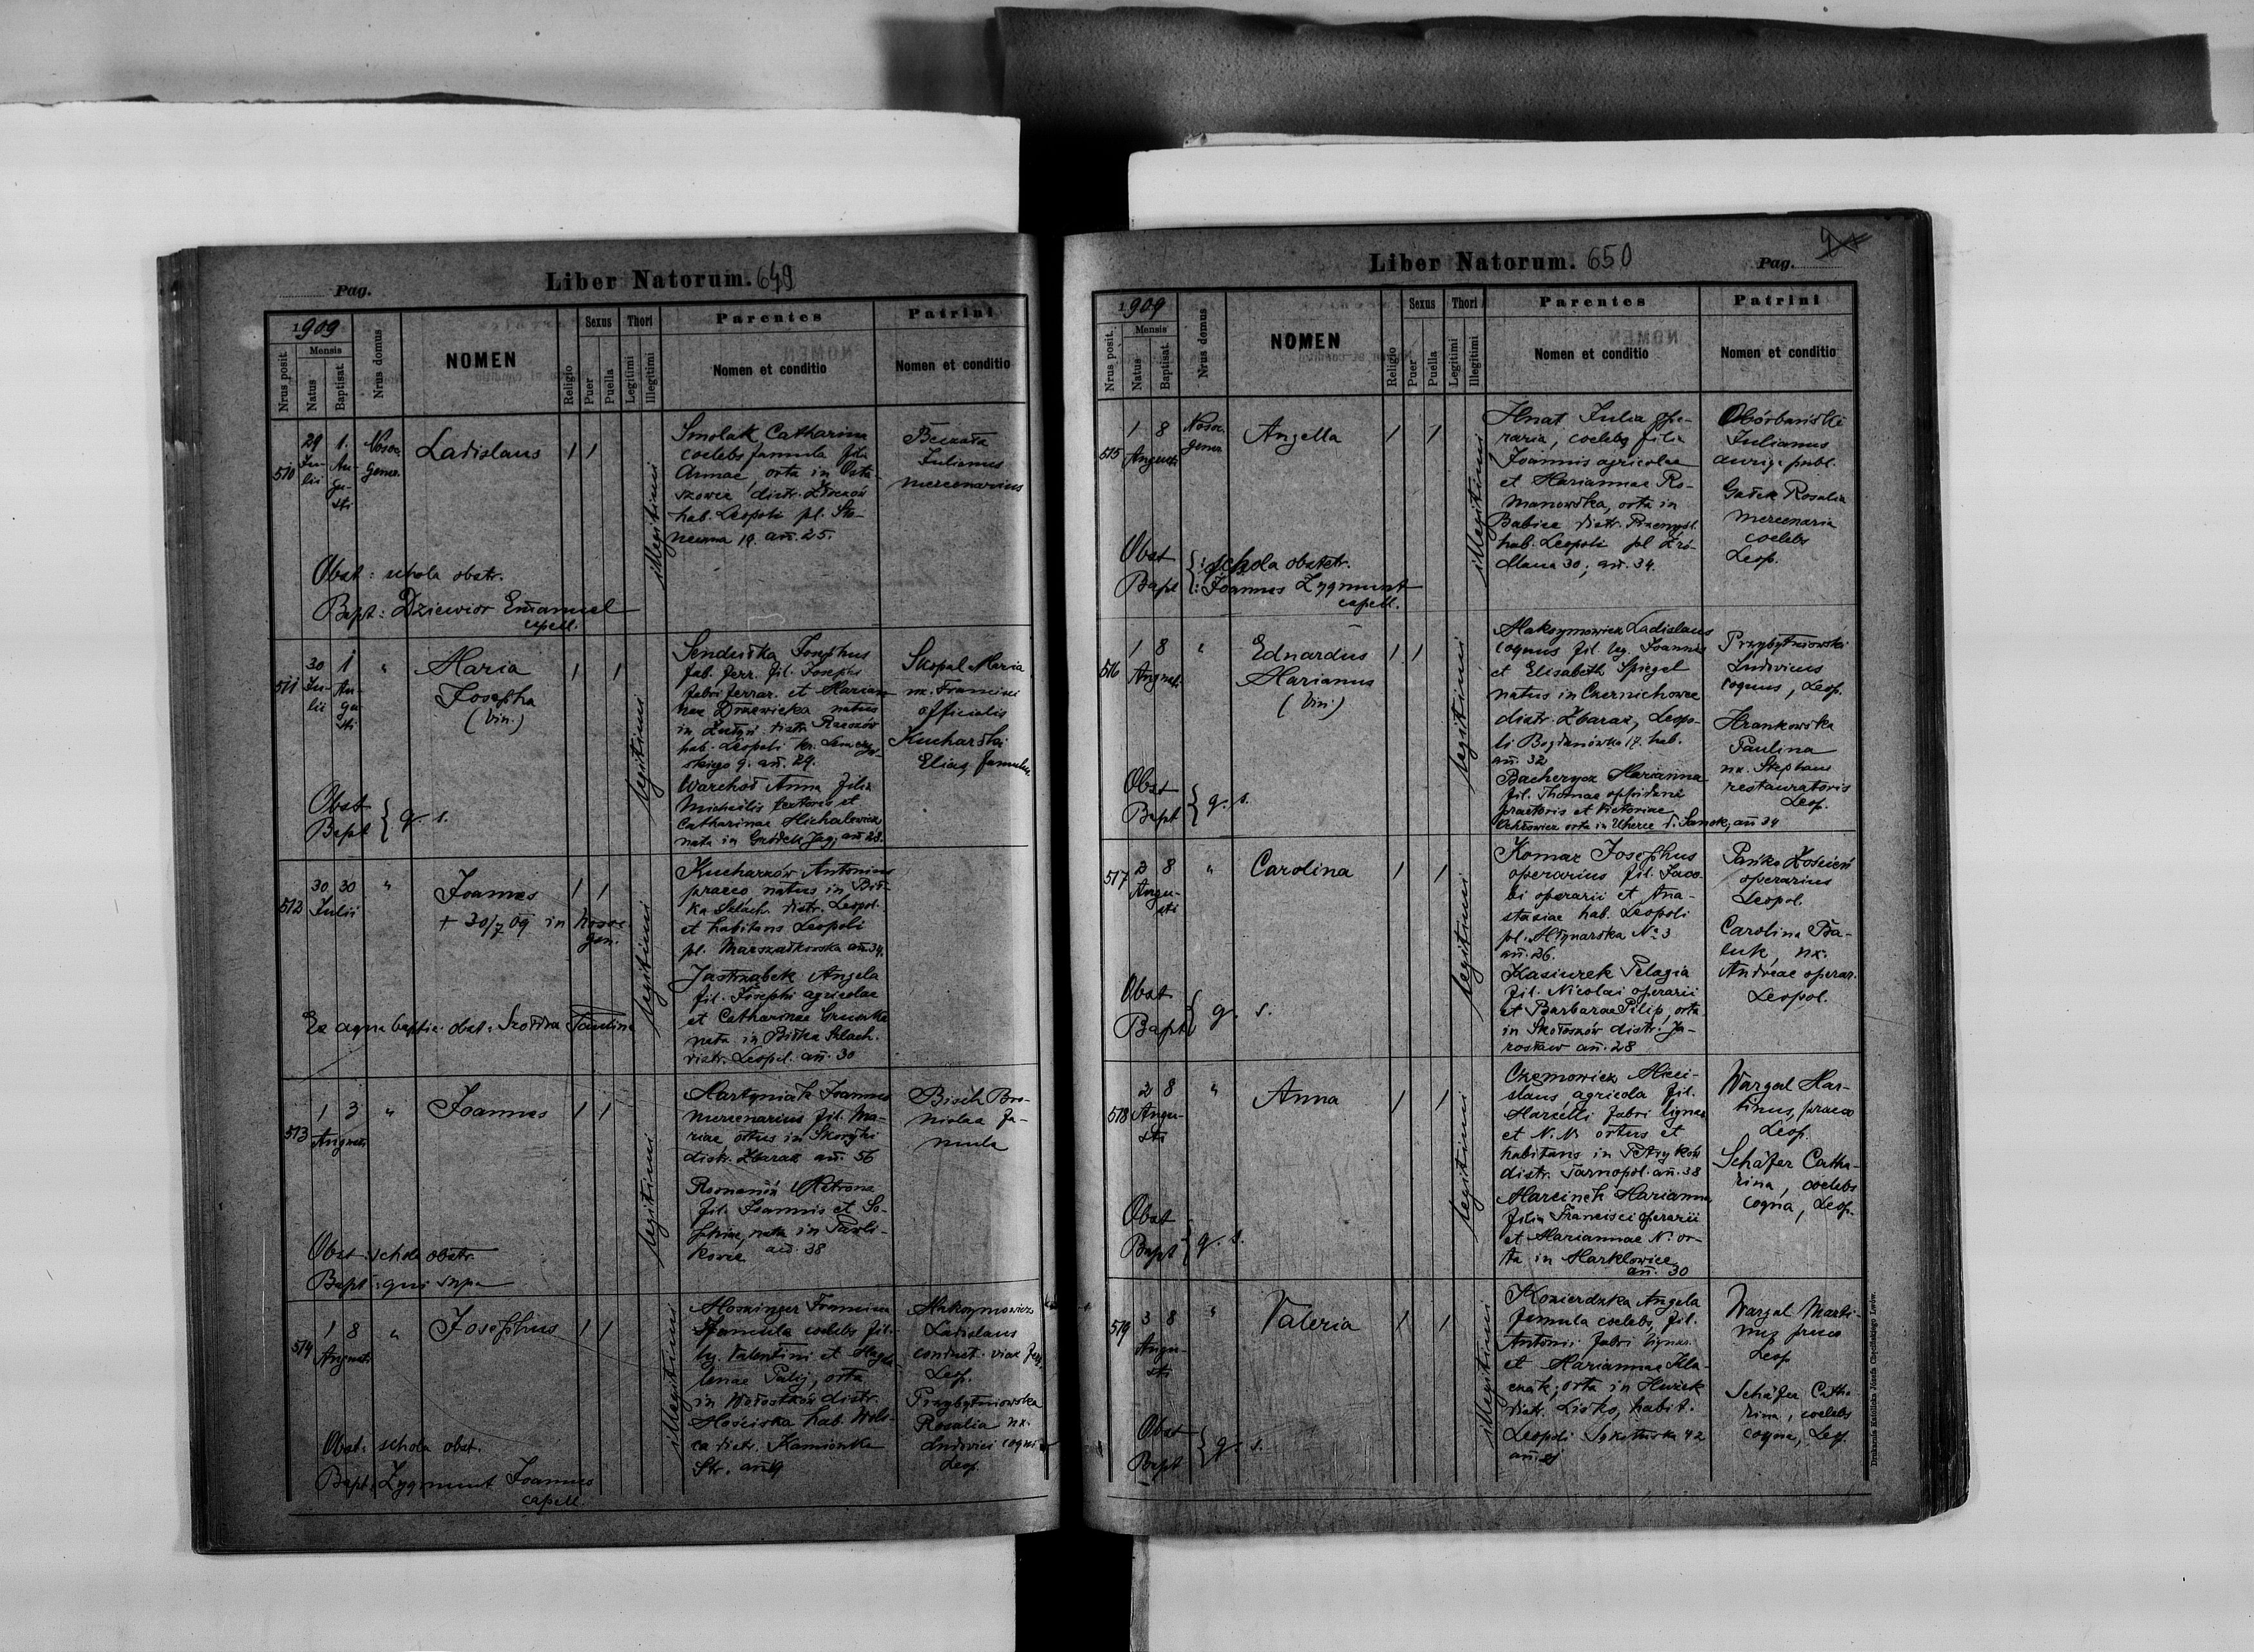 Pag.
Liber Natorum. 649
1909
Nrus posit.
Mensis
Natus
Baptisat.
Nrus domus
NOMEN
Religio
Sexus
Puer
Puella
Thori
Legitimi
Illegitimi
Parentes
Nomen et conditio
Patrini
Nomen et conditio
510
29
Ju-
lii
1.
Au-
gu-
sti
Nosoc.
gener.
Ladislaus
1 1
illegitimi
Smolak Catharina
coelebs famula filia
Annae, orta in Osta-
szowce distr.
hab. Leopoli pl.
19. añ. 25.
Julianus
mercenarius
Obst: schola obstr.
Bapt: Dziewior Emanuel
capell.
511
30
Ju-
lii
1
Au-
gu-
sti
"
Maria
Josepha
(Vin.)
1 1
legitimi
Josephus
fab. ferr. fil. Josephi
fabri ferrar. et Marian-
nae natus
in distr. Rzeszów
hab. Leopoli
9. añ. 29.
Anna filia
Michaelis et
Catharinae Michalowicz
nata in Gródek Jag. añ 28.
Skopal Maria
Francisci
officialis
Kucharski
Elias famulus
Obst
Bapt } q. s.
512
30 30
Julii
"
Joannes
+ 30/7 09 in Nosoc
gen.
1 1
legitimi
Kucharzów Antonius
praeco natus in Bił-
ka Szlach. distr. Leopol.
et habitans Leopoli
pl. añ. 34.
Jastrząbek Angela
fil. Josephi agricolae
et Catharinae
nata in Biłka Szlach.
distr. Leopol. añ. 30
Ex aqua baptiz. obst. Paulina
513
1 3
Augusti
"
Joannes
1 1
legitimi
Martyniak Joannes
mercenarius fil. Ma-
riae ortus in Skoryki
distr. Zbaraz añ. 56
fil. Joannis et So-
phiae, nata in Pawli-
kowce añ. 38
Bro-
nislaa fa-
mula
Obst: schola obstr.
Bapt: qui supra
514
1 8
Augusti
"
Josephus
1 1
illegitimi
Moszinger Francisca
famula coelebs fil.
lg. Valentini et Magda-
lenae Palij, orta
in Wołostków distr.
Mościska hab. Wols-
ca distr. Kamionka
Str.
Maksymowicz
Ladislaus
conduct. viae ferr.
Leop.
Przybytniowska
Rosalia ux.
Ludovici coqui
Leop.
Obst: schola obst.
Bapt. Zygmunt Joannes
capell.
Liber Natorum. 650
Pag.
1909
Nrus posit.
Mensis
Natus
Baptisat.
Nrus domus
NOMEN
Religio
Sexus
Puer
Puella
Thori
Legitimi
Illegitimi
Parentes
Nomen et conditio
Patrini
Nomen et conditio
515
1 8
Augusti
Nosoc.
gener.
Angella
1 1
illegitimi
Hnat Julia ope-
raria, coelebs filia
Joannis agricolae
et Mariannae Ro-
manowska, orta in
Babice distr. Przemysl.
hab. Leopoli pl Źró-
dlana 30; añ. 34.
Julianus
auriga publ.
Gałek Rosalia
mercenaria
coelebs
Leop.
Obst
Bapt { : schola obstetr.
: Joannes Zygmunt
capell.
516
1 8
Augusti
"
Eduardus
Marianus
(Vin.)
1 1
legitimi
Maksymowicz Ladislaus
coquus fil. lg. Joannis
et Elisabeth Spiegel
natus in Czernichowce
distr. Zbaraz, Leopo-
li Bogdanówka 17. hab.
añ. 32
Marianna
fil. Thomae oppidani
praetoris et Victoriae
orta in Uherce d. Sanok, añ 34
Przybytniowski
Ludovicus
coquus, Leop.
Hrankowska
Paulina
ux. Stephani
restauratoris
Leop.
Obst
Bapt { q. s.
517
2 8
Augu-
sti
"
Carolina
1 1
legitimi
Komar Josephus
operarius fil. Jaco-
bi operarii et Ana-
stasiae hab. Leopoli
pl. Młynarska No 3
añ. 26.
Kasiurek Pelagia
fil. Nicolai operarii
et Barbarae Pilip, orta
in Skołoszów distr. Ja-
rosław añ. 28
Pańko
operarius
Leopol.
Carolina Ba-
luk, ux.
Andreae operar.
Leopol.
Obst
Bapt { q. s.
518
2 8
Augu-
sti
"
Anna
1 1
legitimi
Mieci-
slaus, agricola fil.
Marcelli fabri lignar
et N. N. ortus et
habitans in Petryków
distr. Tarnopol. añ. 38
Marcinek Marianna
filia Francisci operarii
et Mariannae N. or-
ta in Marklowice
añ. 30
Wargal Mar-
tinus, praeco
Leop.
Schäfer Catha-
rina, coelebs
coqua, Leop.
Obst
Bapt { q. s.
519
3 8
Augu-
sti
"
Valeria
1 1
illegitimi
Kozierdzka Angela
famula coelebs, fil.
Antonii fabri lignar.
et Mariannae Kla-
czak, orta in Huzele
distr. Lisko, habit.
Leopoli Sykstuska 42
Wargal Marti-
nus praeco
Leop
Schäfer Catha
rina, coelebs
coqua, Leop.
Obst
Bapt { q. s.
Drukarnia Katolicka Józefa Chęcińskiego Lwów.